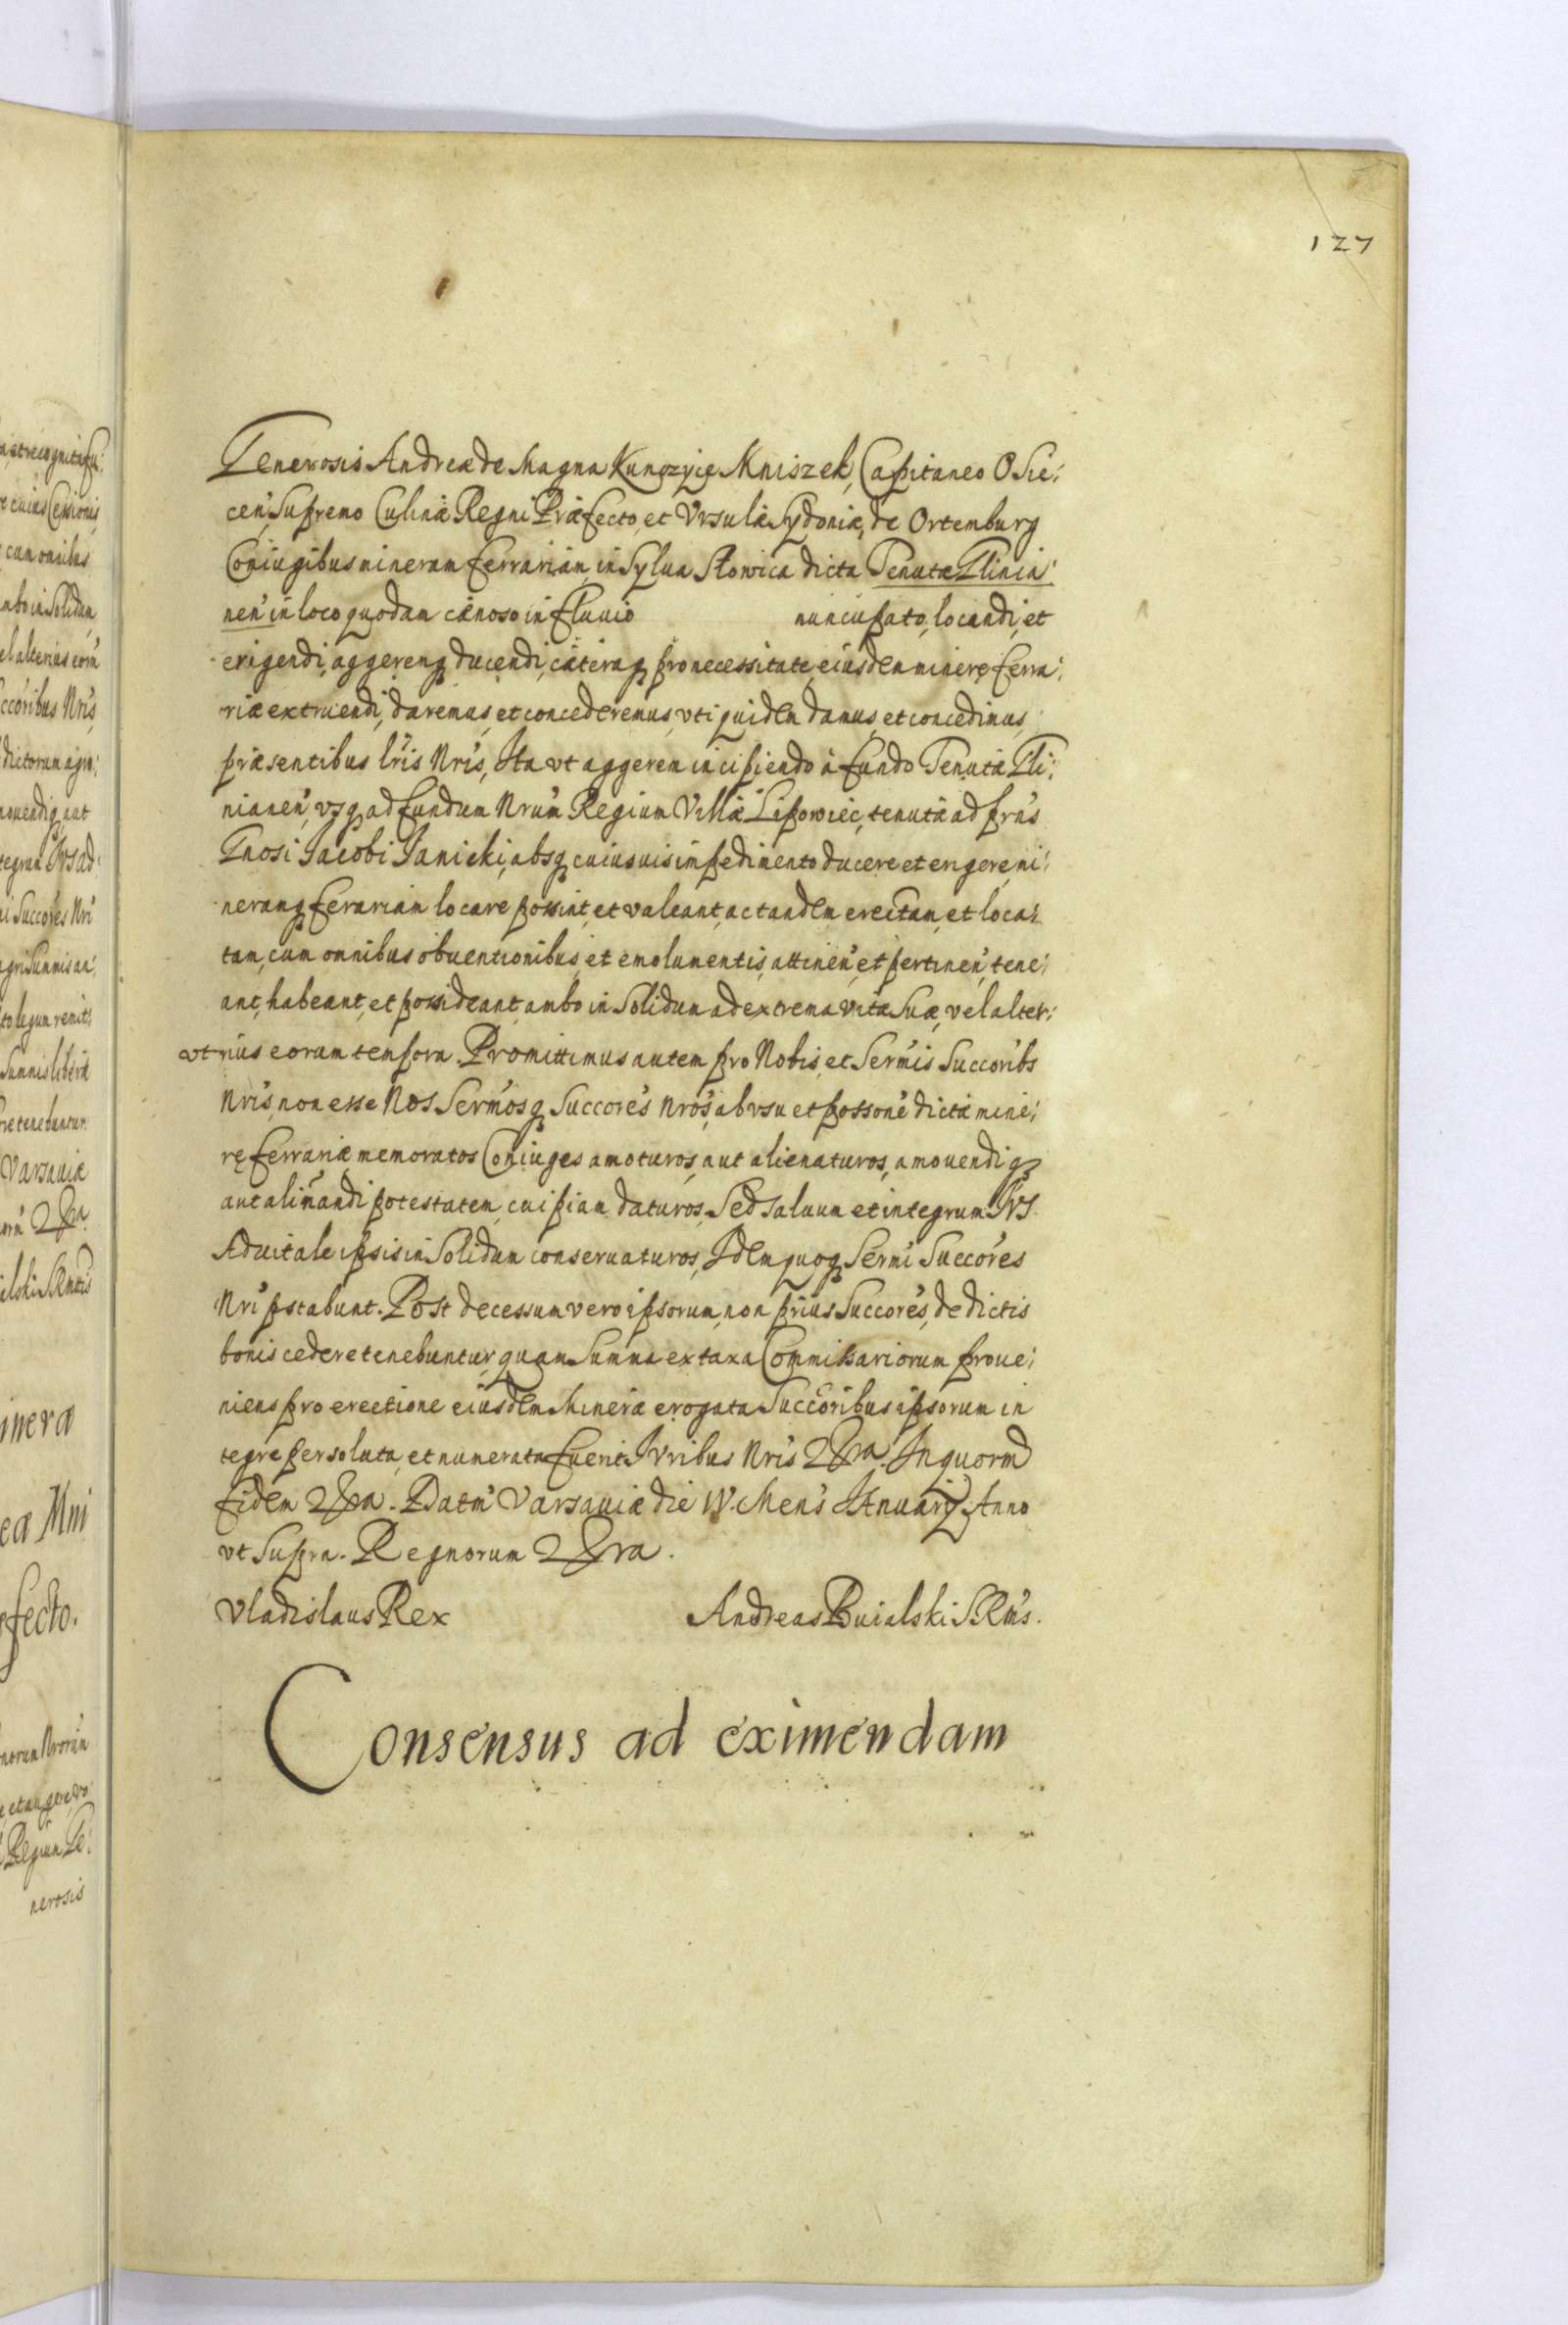 127
Generosis Andreæ de Magna Kunczyce Mniszek, Capitaneo Osie:
cen̄, Supremo Culinæ Regni Præfecto, et Vrsulæ Sydoniæ, de Ortemburg
Coniugibus mineram ferrariam, in Sylua Słowica dicta Tenutæ Glinia:
nen̄ in loco quodam cænoso in fluuio nuncupato, locandi, et
erigendi, aggeremq; ducendi, cæteraq; pro necessitate, eiusdem mineræ ferra:
riæ extruendi, daremus, et concederemus, vti quidem damus, et concedimus,
præsentibus lr̄is Nr̄is, Ita vt aggerem incipiendo à fundo Tenutæ Gli:
nianen̄, vsq; ad fundum Nrūm Regium Villæ Lipowiec, tenutæ ad prn̄s
Gnosi Jacobi Janicki, absq; cuiusuis impedimento ducere et erigere, mi:
neramq; ferariam locare possint, et valeant, ac tandem erectam, et loca:
tam, cum omnibus obuentionibus, et emolumentis, attinen̄, et pertinen̄, tene:
ant, habeant, et possideant, ambo in Solidum ad extrema vitæ Suæ, vel alter:
vtrius eorum tempora. Promittimus autem pro Nobis, et Serm̄is Succorib̄s
Nr̄is, non esse Nos Serm̄osq; Succorēs Nrōs, ab vsu et possonē dictæ mine:
ræ ferrariæ memoratos Coniuges amoturos, aut alienaturos, amouendiq;
aut alīnandi potestatem, cuipiam daturos, Sed saluum et integrum Jvs
Aduitale ipsis in Solidum conseruaturos, Idem quoq; Serm̄i Succorēs
Nr̄i pstabunt. Post decessum vero ipsorum, non prius Succorēs, de dictis
bonis cedere tenebuntur, quam Summa ex taxa Commissariorum proue:
niens pro erectione eiusdem Mineræ erogata Succoribus ipsorum in
tegre persoluta, et numerata fuerit. Jvribus Nr̄is &ra. In quorm̄
fidem &ra. Datm̄ Varsauiæ die IV. Mens̄ Januarij Anno
vt Supra. Regnorum &ra.
Vladislaus Rex Andreas Buialski SRMs̄.
Consensus ad eximendam